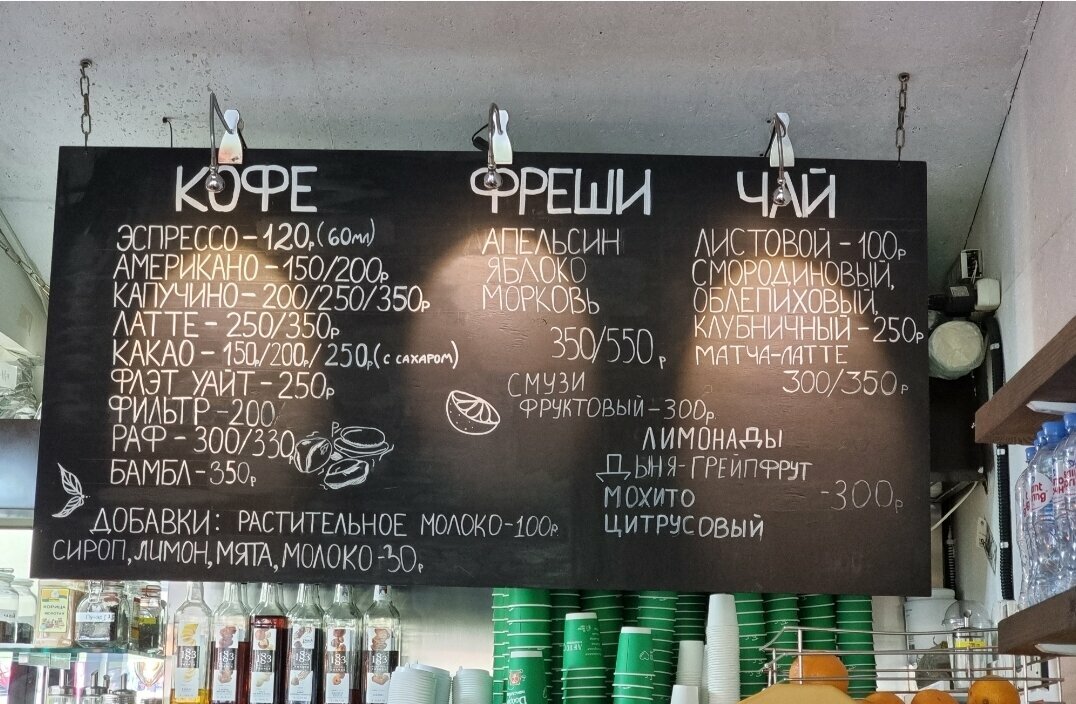 КОФЕ
ЭСПРЕССО - 120р (60мл)
АМЕРИКАНО - 150/200р
КАПУЧИНО - 200/250/350р
ЛАТТЕ - 250/350р
КАКАО - 150р/200р/250р (с сахаром)
ФЛЭТ УАЙТ - 250р
ФИЛЬТР - 200р
РАФ - 300/330р
БАМБЛ - 350р
ДОБАВКИ: РАСТИТЕЛЬНОЕ МОЛОКО - 100р
СИРОП, ЛИМОН, МЯТА, МОЛОКО - 30р
ФРЕШИ
АПЕЛЬСИН
ЯБЛОКО
МОРКОВЬ
350/550р
СМУЗИ
ФРУКТОВЫЙ - 300р
ЛИМОНАДЫ
ДЫНЯ-ГРЕЙПФРУТ
МОХИТО - 300р
ЦИТРУСОВЫЙ
ЧАЙ
ЛИСТОВОЙ - 100р
СМОРОДИНОВЫЙ,
ОБЛЕПИХОВЫЙ,
КЛУБНИЧНЫЙ - 250р
МАТЧА-ЛАТТЕ
300/350р
КОРИЦА
183
183
183
183